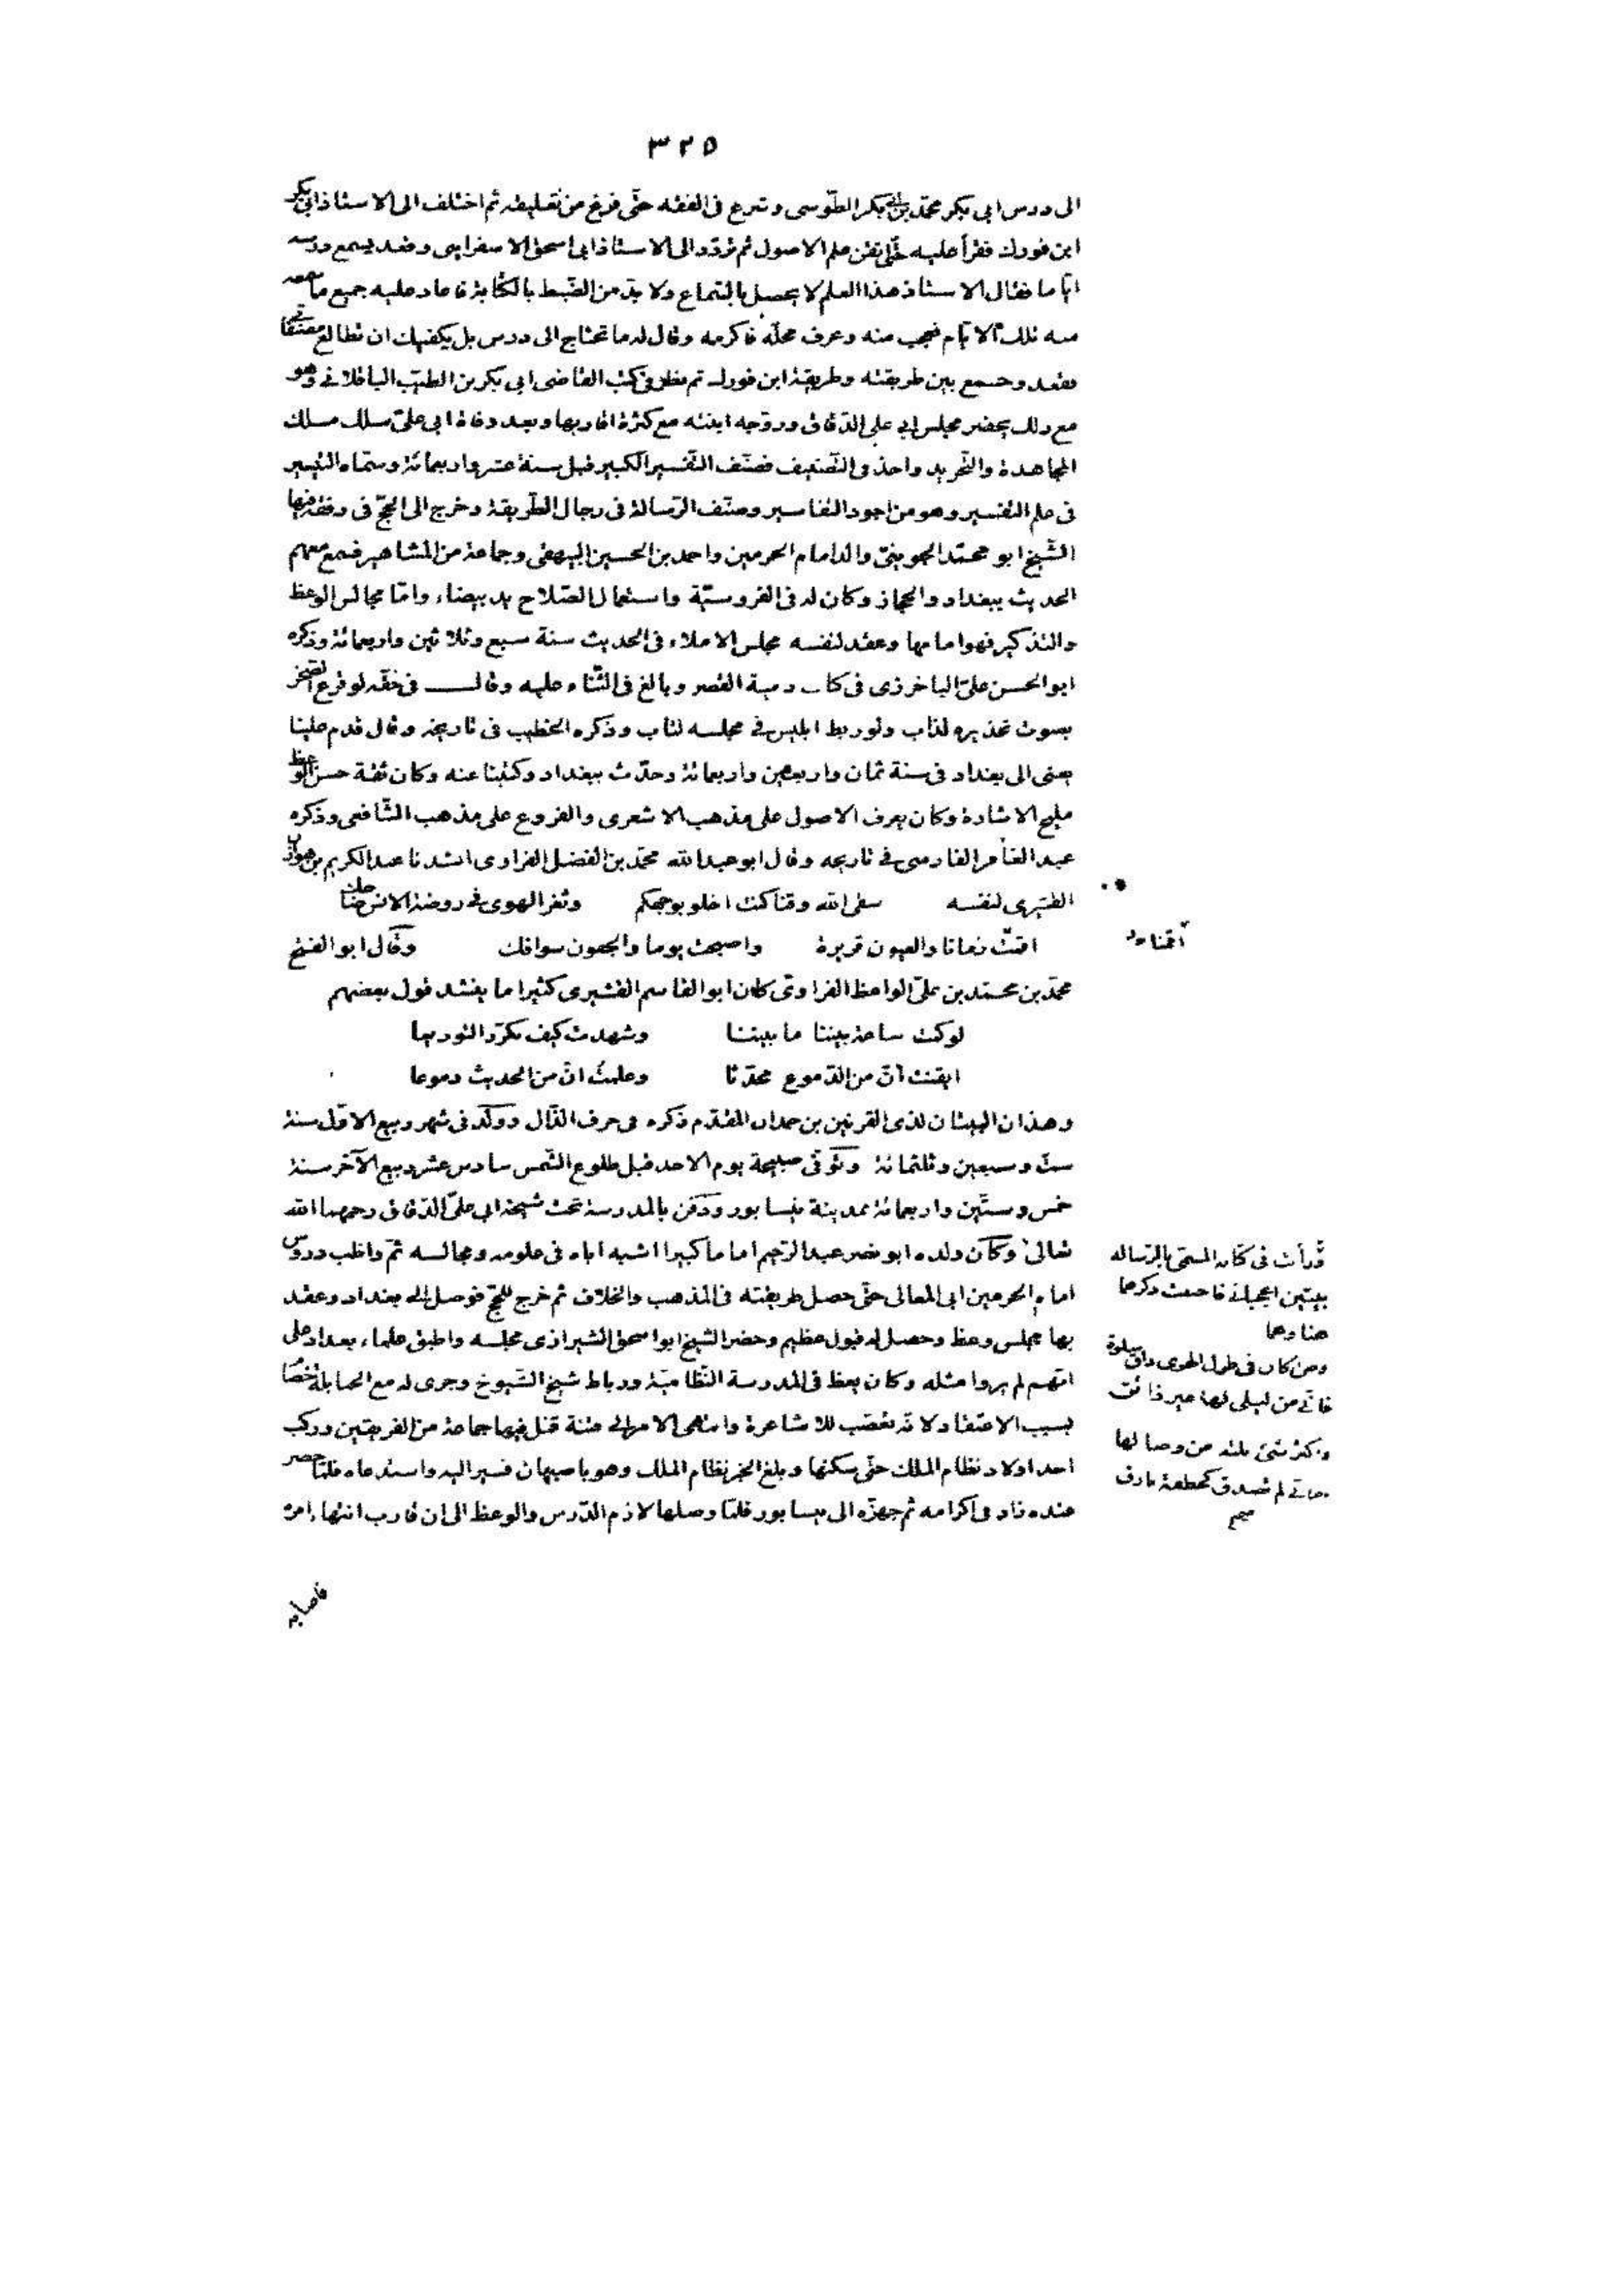 ٣٢٥
الى درس ابى بكر محمّد بن ابى بكر الطّوسى وشرع فى الفقه حتّى فرغ من تعليقه ثم اختلف الى الاستاذ ابى بكر
ابن فورك فقرأ عليه حتّى اتقن علم الاصول ثم تردّد الى الاستاذ ابى اسحق الاسفراينى وقعد يسمع درسه
ايّاما فقال الاستاذ هذا العلم لا يحصل بالسّماع ولا بدّ من الضّبط بالكتابة فاعاد عليه جميع ما سمعه
منه تلك الايّام فعجب منه وعرف محلّه فاكرمه وقال له ما تحتاج الى درس بل يكفيك ان تطالع مصنّفاتى
فقعد وجمع بين طريقته وطريقة ابن فورك ثم نظر فى كتب القاضى ابى بكر بن الطيّب الباقلانى وهو
مع ذلك يحضر مجلس ابى على الدّقاق وزوّجه ابنته مع كثرة اقاربها وبعد وفاة ابى علىّ سلك مسلك
المجاهدة والتّجريد واخذ فى التّصنيف فصنّف التّفسير الكبير قبل سنة عشر واربعمائة وسمّاه التّيسير
فى علم التّفسير وهو من اجود التّفاسير وصنّف الرّسالة فى رجال الطّريقة وخرج الى الحجّ فى رفقة فيها
الشّيخ ابو محمّد الجوينىّ والد امام الحرمين واحمد بن الحسين البيهقى وجماعة من المشاهير فسمع معهم
الحديث ببغداد والحجاز وكان له فى الفروسيّة واستعمال السّلاح يد بيضاء وامّا مجالس الوعظ
والتذكير فهو امامها وعقد لنفسه مجلس الاملاء فى الحديث سنة سبع وثلاثين واربعمائة وذكره
ابو الحسن علىّ الباخرزى فى كتاب دمية القصر وبالغ فى الثّناء عليه وقال فى حقّه لو قرع الصّخر
بسوت تحذيره لذاب ولو ربط ابليس فى مجلسه لتاب وذكره الخطيب فى تاريخه وقال قدم علينا
يعنى الى بغداد فى سنة ثمان واربعين واربعمائة وحدّث ببغداد وكتبنا عنه وكان ثقة حسن الوعظ
مليح الاشارة وكان يعرف الاصول على مذهب الاشعرى والفروع على مذهب الشّافعى وذكره
عبد الغافر الفارسى فى تاريخه وقال ابو عبد الله محمّد بن الفضل الفراوى انشدنا عبد الكريم بن هوازن
القشيرى لنفسه سقى الله وقتا كنت اخلو بوجهكم وثغر الهوى فى روضة الانس ضاحك
اقمت زمانا والعيون قريرة واصبحت يوما والجفون سوافك وقال ابو الفتح
اقمنا
محمّد بن محمّد بن علىّ الواعظ الفراوىّ كان ابو القاسم القشيرى كثيرا ما ينشد قول بعضهم
لو كنت ساعة بيننا ما بيننا وشهدت كيف تكرّر التّوديعا
ايقنت انّ من الدّموع محدّثا وعلمت انّ من الحديث دموعا
وهذان البيتان لذى القرنين بن حمدان المقدّم ذكره فى حرف الذّال وولد فى شهر ربيع الاوّل سنة
ستّ وسبعين وثلثمائة وتوفّى صبيحة يوم الاحد قبل طلوع الشّمس سادس عشر ربيع الآخر سنة
خمس وستّين واربعمائة بمدينة نيسابور ودفن بالمدرسة تحت شيخه ابى علىّ الدّقاق رحمهما الله
تعالى وكان ولده ابو نصر عبد الرّحيم اماما كبيرا اشبه اباه فى علومه ومجالسه ثمّ واظب دروس
امام الحرمين ابى المعالى حتّى حصل طريقته فى المذهب والخلاف ثم خرج للحجّ فوصل الى بغداد وعقد
بها مجلس وعظ وحصل له قبول عظيم وحضر الشّيخ ابو اسحق الشيرازى مجلسه واطبق علماء بغداد على
انّهم لم يروا مثله وكان يعظ فى المدرسة النّظاميّة ورباط شيخ الشّيوخ وجرى له مع الحنابلة خصام
بسبب الاعتقاد لانّه تعصّب للاشاعرة وانتهى الامر الى فتنة قتل فيها جماعة من الفريقين وركب
احد اولاد نظام الملك حتّى سكنها وبلغ الخبر نظام الملك وهو باصبهان فسيّر اليه واستدعاه فلمّا حضر
عنده زاد فى اكرامه ثم جهّزه الى نيسابور فلمّا وصلها لازم الدّرس والوعظ الى ان قارب انتهاء امره
فاصابه
قرأت فى كتابه المسمّى بالرّساله
بيتين اعجبانى فاحببت ذكرهما
هنا وهما
ومن كان فى طول الهوى ذاق سلوة
فانّى من ليلى لها غير ذائق
واكثر شئ نلته من وصالها
امانى لم تصدق كخطفة بارق
صح